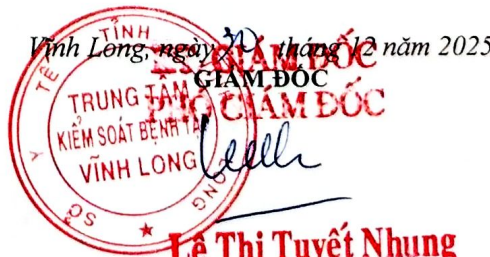 Vĩnh Long, ngày tháng 12 năm 2025
GIÁM ĐỐC
GIÁM ĐỐC
PHÓ GIÁM ĐỐC
SỞ Y TẾ TỈNH LONG
TRUNG TÂM
KIỂM SOÁT BỆNH TẬT
VĨNH LONG
Lê Thị Tuyết Nhung